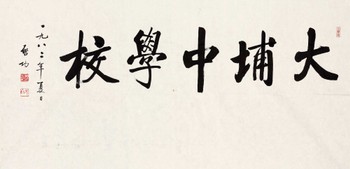 大埔中學校
一九八二年夏日
啟功